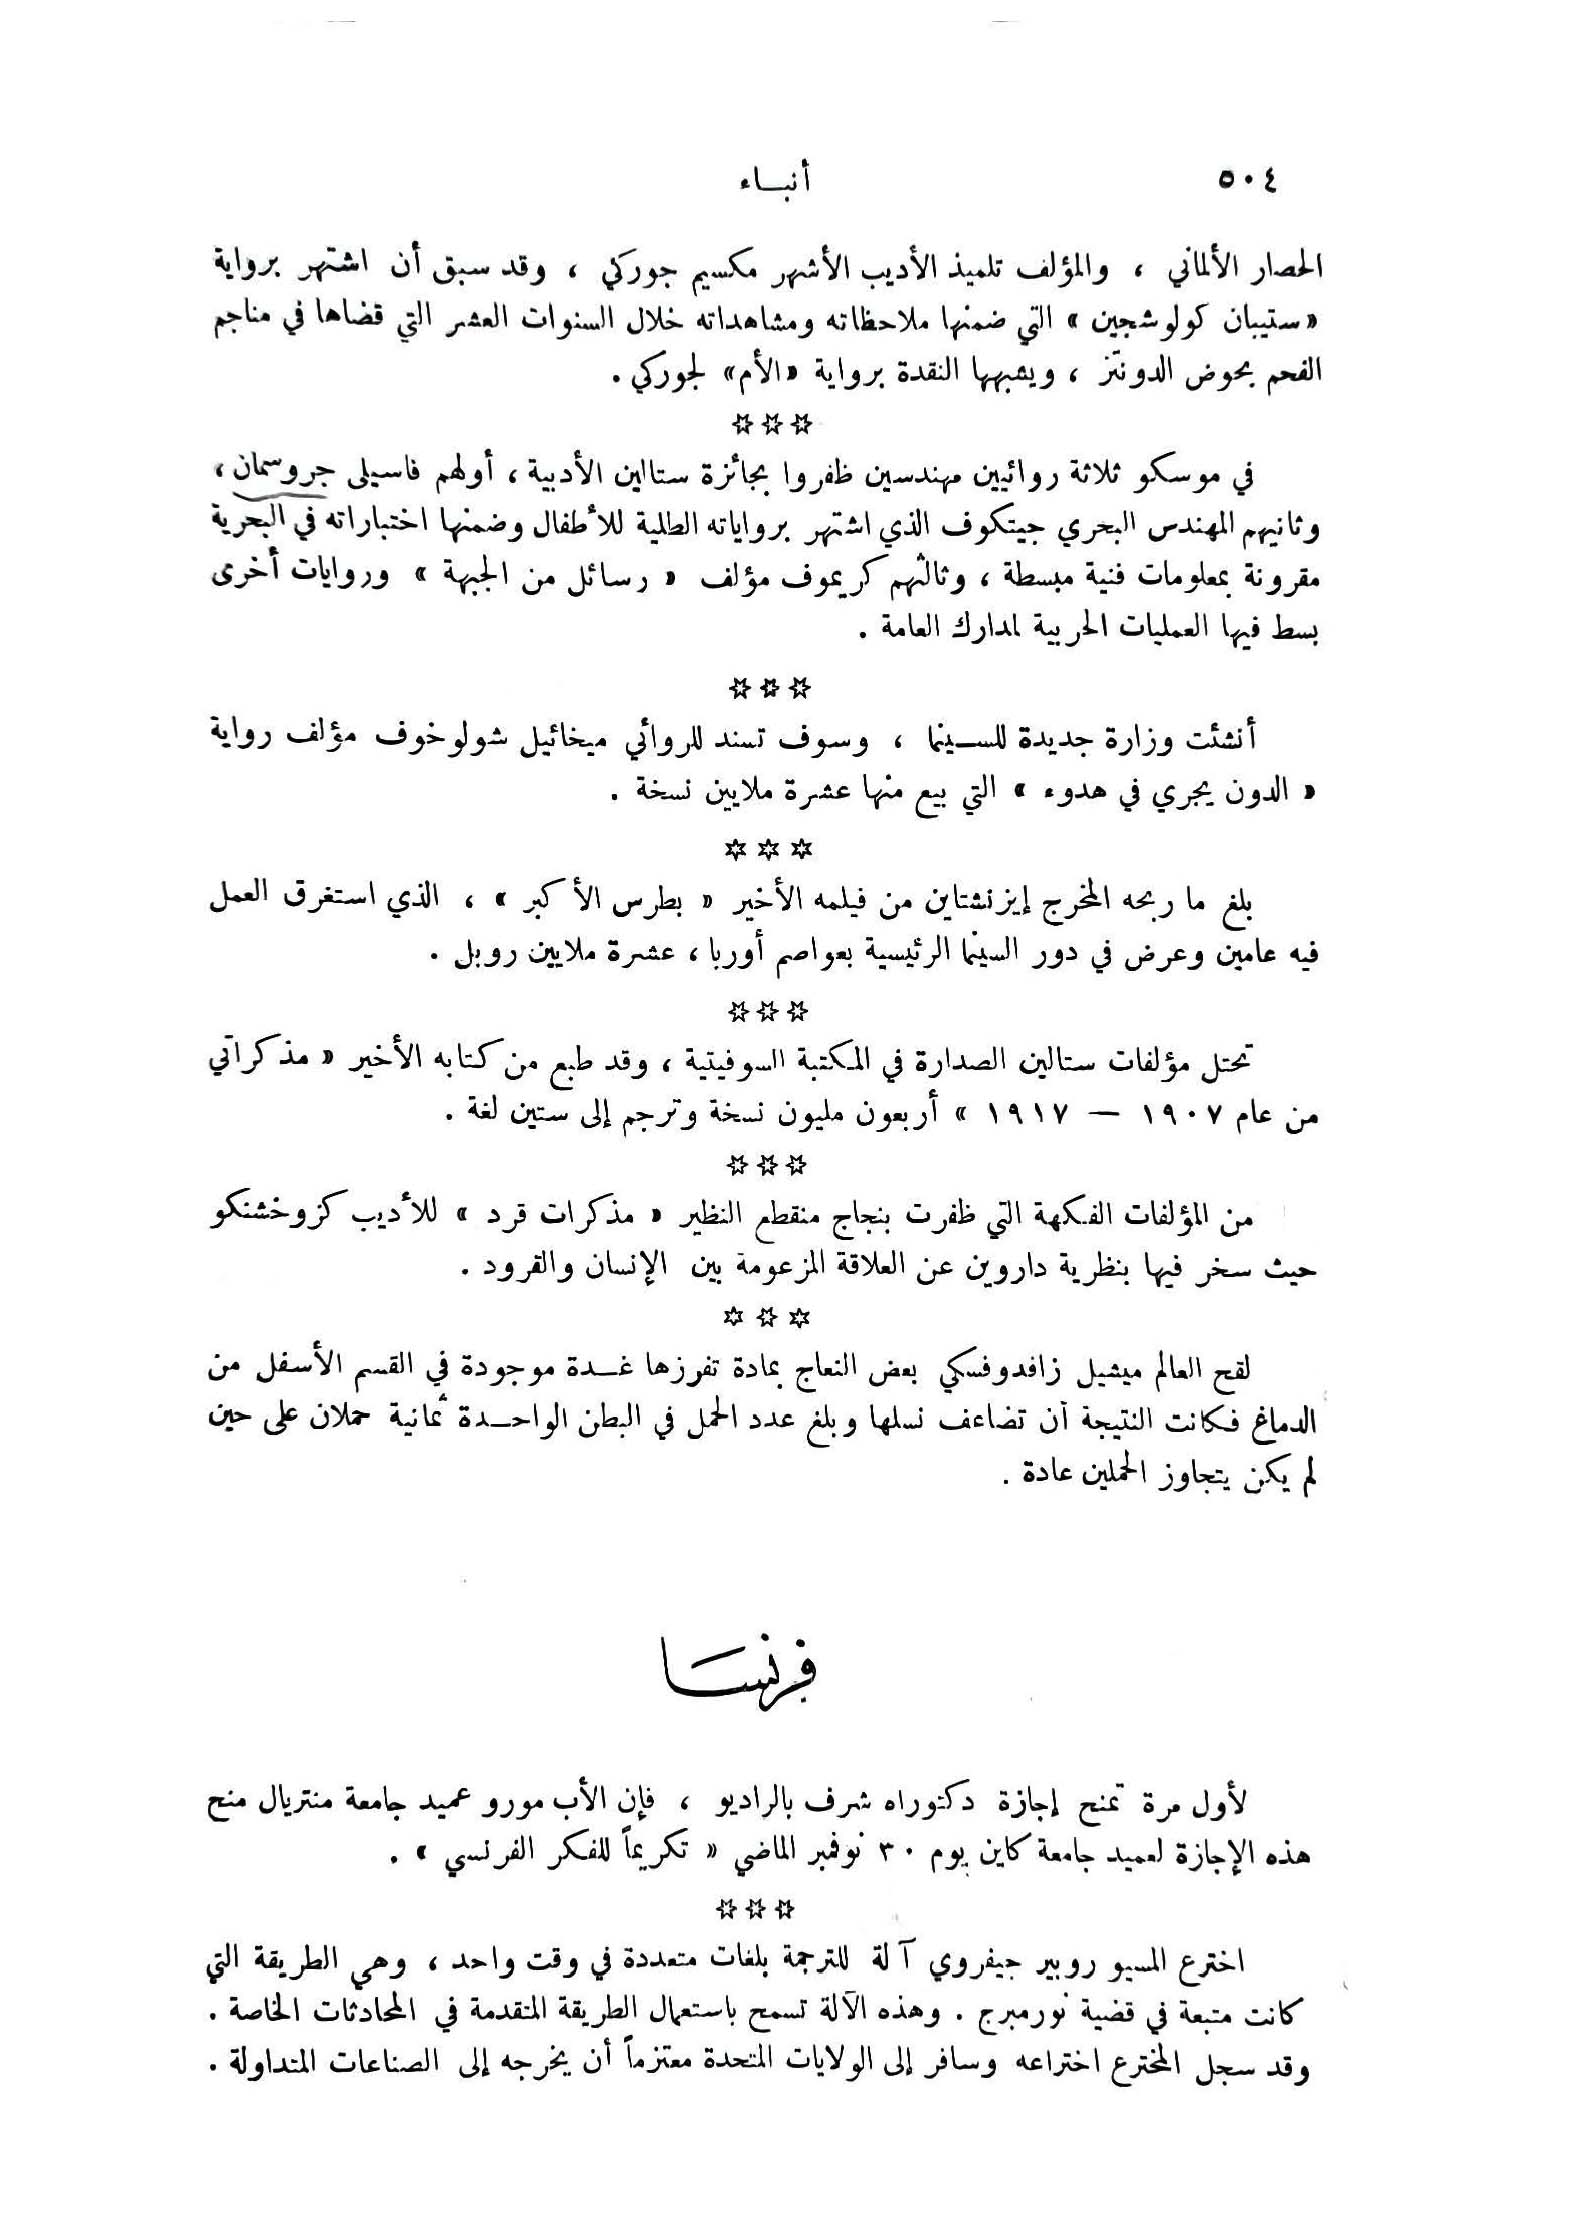 ٥٠٤
أنباء
الحصار الألماني ، والمؤلف تلميذ الأديب الأشهر مكسيم جوركي ، وقد سبق أن اشتهر برواية
«ستيبان كولوشجين» التي ضمنها ملاحظاته ومشاهداته خلال السنوات العشر التي قضاها في مناجم
الفحم بحوض الدونتز ، ويشبهها النقدة برواية «الأم» لجوركي .
***
في موسكو ثلاثة روائيين مهندسين ظفروا بجائزة ستالين الأدبية ، أولهم فاسيلى جروسمان ،
وثانيهم المهندس البحري جيتكوف الذي اشتهر برواياته الطلية للأطفال وضمنها اختباراته في البحرية
مقرونة بمعلومات فنية مبسطة ، وثالثهم كريموف مؤلف « رسائل من الجبهة » وروايات أخرى
بسط فيها العمليات الحربية لمدارك العامة .
***
أنشئت وزارة جديدة للسينما ، وسوف تسند للروائي ميخائيل شولوخوف مؤلف رواية
« الدون يجري في هدوء » التي بيع منها عشرة ملايين نسخة .
***
بلغ ما ربحه المخرج إيزنشتاين من فيلمه الأخير « بطرس الأكبر » ، الذي استغرق العمل
فيه عامين وعرض في دور السينما الرئيسية بعواصم أوربا ، عشرة ملايين روبل .
***
تحتل مؤلفات ستالين الصدارة في المكتبة السوفيتية ، وقد طبع من كتابه الأخير « مذكراتي
من عام ١٩٠٧ — ١٩١٧ » أربعون مليون نسخة وترجم إلى ستين لغة .
***
من المؤلفات الفكهة التي ظفرت بنجاج منقطع النظير « مذكرات قرد » للأديب كزوخشنكو
حيث سخر فيها بنظرية داروين عن العلاقة المزعومة بين الإنسان والقرود .
***
لقح العالم ميشيل زافدوفسكي بعض النعاج بمادة تفرزها غدة موجودة في القسم الأسفل من
الدماغ فكانت النتيجة أن تضاعف نسلها وبلغ عدد الحمل في البطن الواحدة ثمانية حملان على حين
لم يكن يتجاوز الحملين عادة .
فرنسا
لأول مرة تمنح إجازة دكتوراه شرف بالراديو ، فإن الأب مورو عميد جامعة منتريال منح
هذه الإجازة لعميد جامعة كاين يوم ٣٠ نوفمبر الماضي « تكريماً للفكر الفرنسي » .
***
اخترع المسيو روبير جيفروي آلة للترجمة بلغات متعددة في وقت واحد ، وهي الطريقة التي
كانت متبعة في قضية نورمبرج . وهذه الآلة تسمح باستعمال الطريقة المتقدمة في المحادثات الخاصة .
وقد سجل المخترع اختراعه وسافر إلى الولايات المتحدة معتزماً أن يخرجه إلى الصناعات المتداولة .